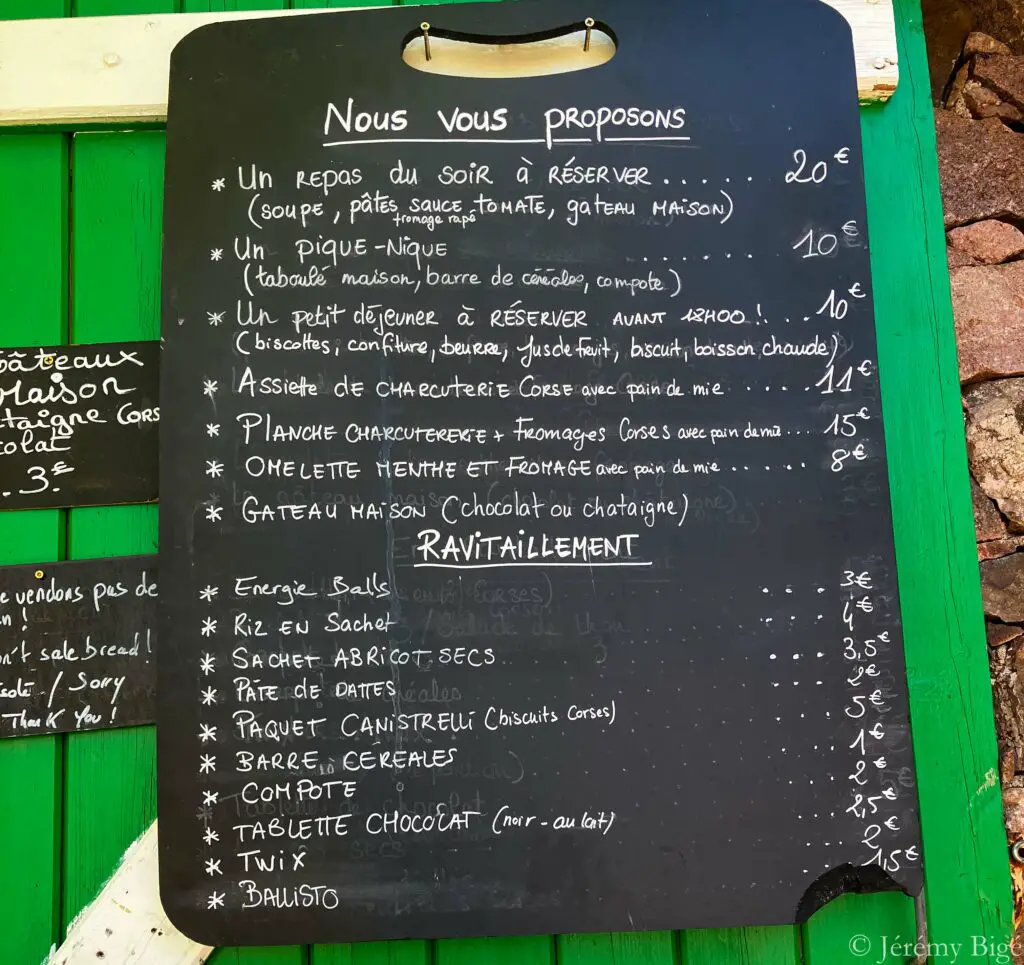 Nous vous proposons
* Un repas du soir à réserver ..... 20€
(soupe, pâtes sauce tomate, gateau maison)
fromage rapé
* Un pique-nique ...... 10€
(taboulé maison, barre de céréales, compote)
* Un petit déjeuner à réserver avant 18h00 !. .. 10€
(biscottes, confiture, beurre, jus de fruit, biscuit, boisson chaude)
* Assiette de charcuterie Corse avec pain de mie ..... 11€
* Planche charcutererie + Fromages Corses avec pain de mie... 15€
* Omelette menthe et fromage avec pain de mie ...... 8€
* Gateau maison (chocolat ou chataigne)
Ravitaillement
* Energie Balls ... 3€
* Riz en Sachet ... 4€
* Sachet abricot secs ... 3,5€
* Pâte de dattes ... 2€
* Paquet Canistrelli (biscuits Corses) ... 5€
* Barre céréales ... 1€
* Compote ... 2€
* Tablette chocolat (noir - au lait) ... 2,5€
* Twix ... 2€
* Ballisto ... 1,5€
Gâteaux
Maison
taigne Cors
colat
.. 3.€
e vendons pas de
n !
n't sale bread !
solé / Sorry
Thank You !
© Jérémy Bigé